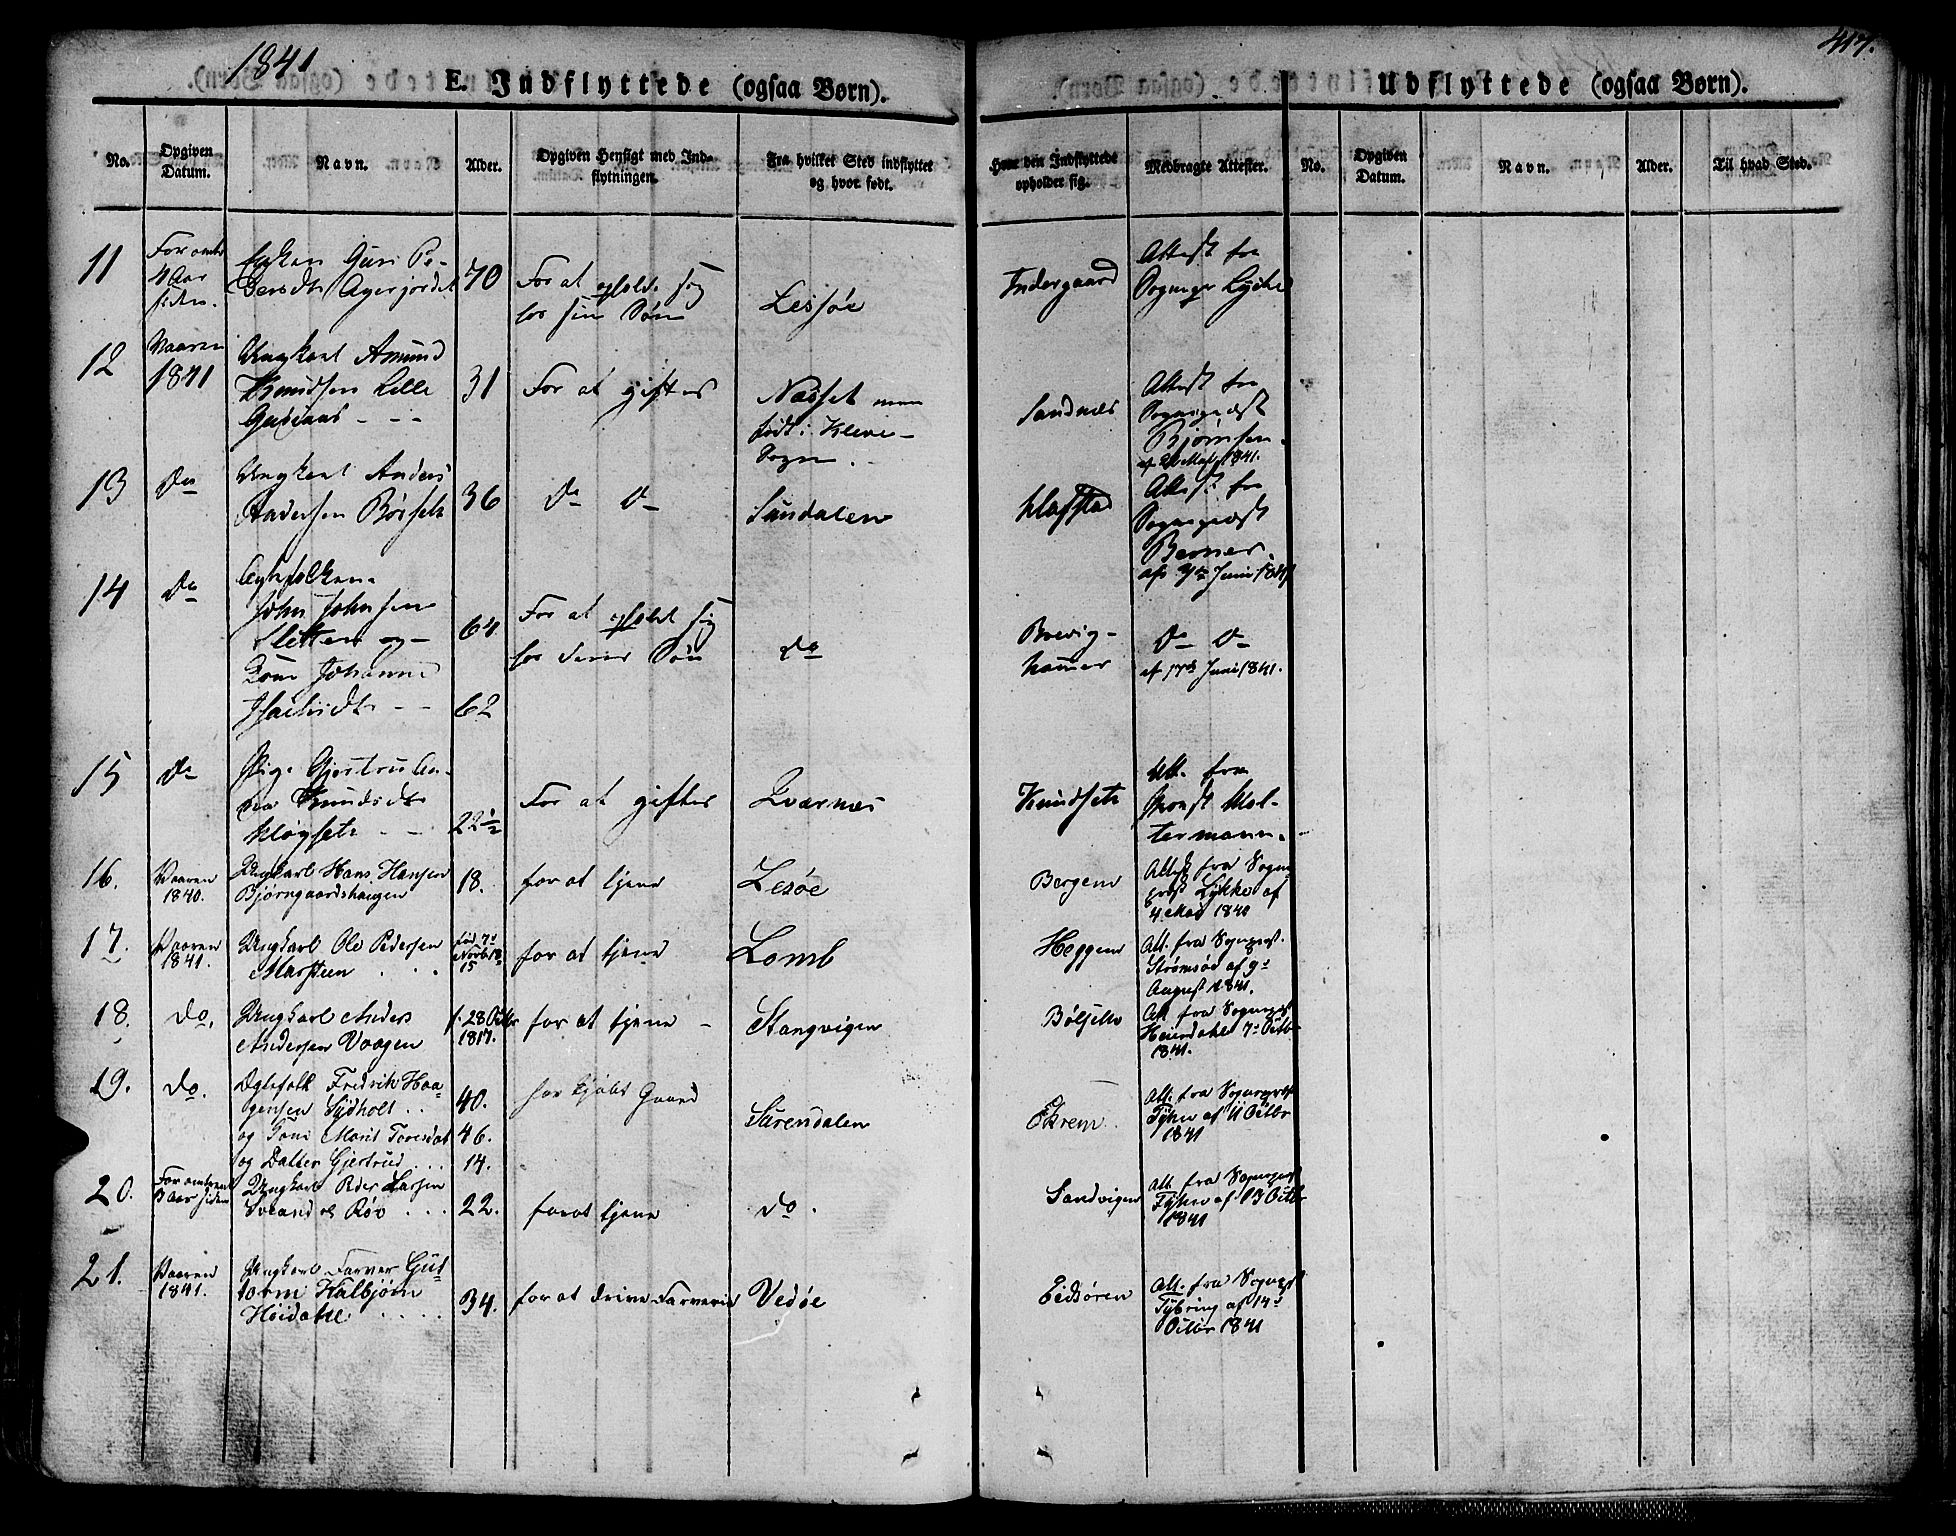 1841
417.
E. Indflyttede (ogsaa Børn).
Udflyttede (ogsaa Børn).
No.
Opgiven Datum.
Navn.
Alder.
Opgiven Hensigt med Indflytningen.
Fra hvilket Sted indflyttet og hvor født.
Hvor den Indflyttede opholder sig.
Medbragte Attester.
No.
Opgiven Datum.
Navn.
Alder.
Til hvad Sted.
11
For omtr
4 Aar
siden.
Enken Guri Pe-
dersdtr
70
For at opholde sig
hos sin Søn
Lessøe
Indergaard
Attest fra
Lycke
12
Vaaren
1841
Ungkarl Amund
Knudsen Lille
31
For at giftes
Næsset men
født i Klevi-
Sogn.
Sandnæs
Attest fra
Sognepræst
Bjørnsen
1841.
13
Do
Ungkarl Anders
Andersen Bôrset
36
Do Do
Sundalen
Attest fra
Sognepræst
Berner
Juni 1841
14
Do
Ægtefolkene
John Johnsen
Sletten og
Kone Johanne
64
62
For at opholde sig
hos deres Søn
Do
Brevig-
hammer
Do Do
af 17de Juni 1841.
15
Do
Pige Gjertru An-
na Knudsdtr
22½
For at giftes
Qvernæs
Knudsæt
Att. fra
Provst Mol-
termann.
16.
Vaaren
1840.
Ungkarl Hans Hansen
Bjørngaardshaugen
18.
for at tjene
Lesøe
Bergem
Attest fra Sogne
præst Lykke af
4. Mai 1840
17.
Vaaren
1841.
Ungkarl Ole Pedersen
Marsteen
fød 7d
15
for at tjene
Lomb
Heggem
Att. fra Sognepst.
Strømsøe af 9d
August 1841.
18.
Do.
Ungkarl Anders
Andersen Vaagen
f. 28 Octbr
1817.
for at tjene
Stangvigen
Att. fra Sognepst
Heierdahl 7d Octbr
1841.
19.
Do.
Ægtefolk Fredrik Haa-
gensen Sydholt
og Kone Marit Toresdat
og Datter Gjertrud
40.
46.
14.
har kjøbt Gaard
Surendalen
Ekrem
Att. fra Sognepræst
af 11 Octbr
1841
20.
For omtrent
3 Aar siden
Ungkarl Peder Larsen
Svean Røv
22.
for at tjene
do.
Sandvigen
Att. fra Sognepst
af 13 Octbr
1841
21.
Vaaren
1841.
Ungkarl Farver Gut-
torm Kalbjørn
Høidahl
34.
for at drive Farverie
Vedøe
Eidsøren
Att. fra Sognepst
Tybring af 14d
Octbr 1841